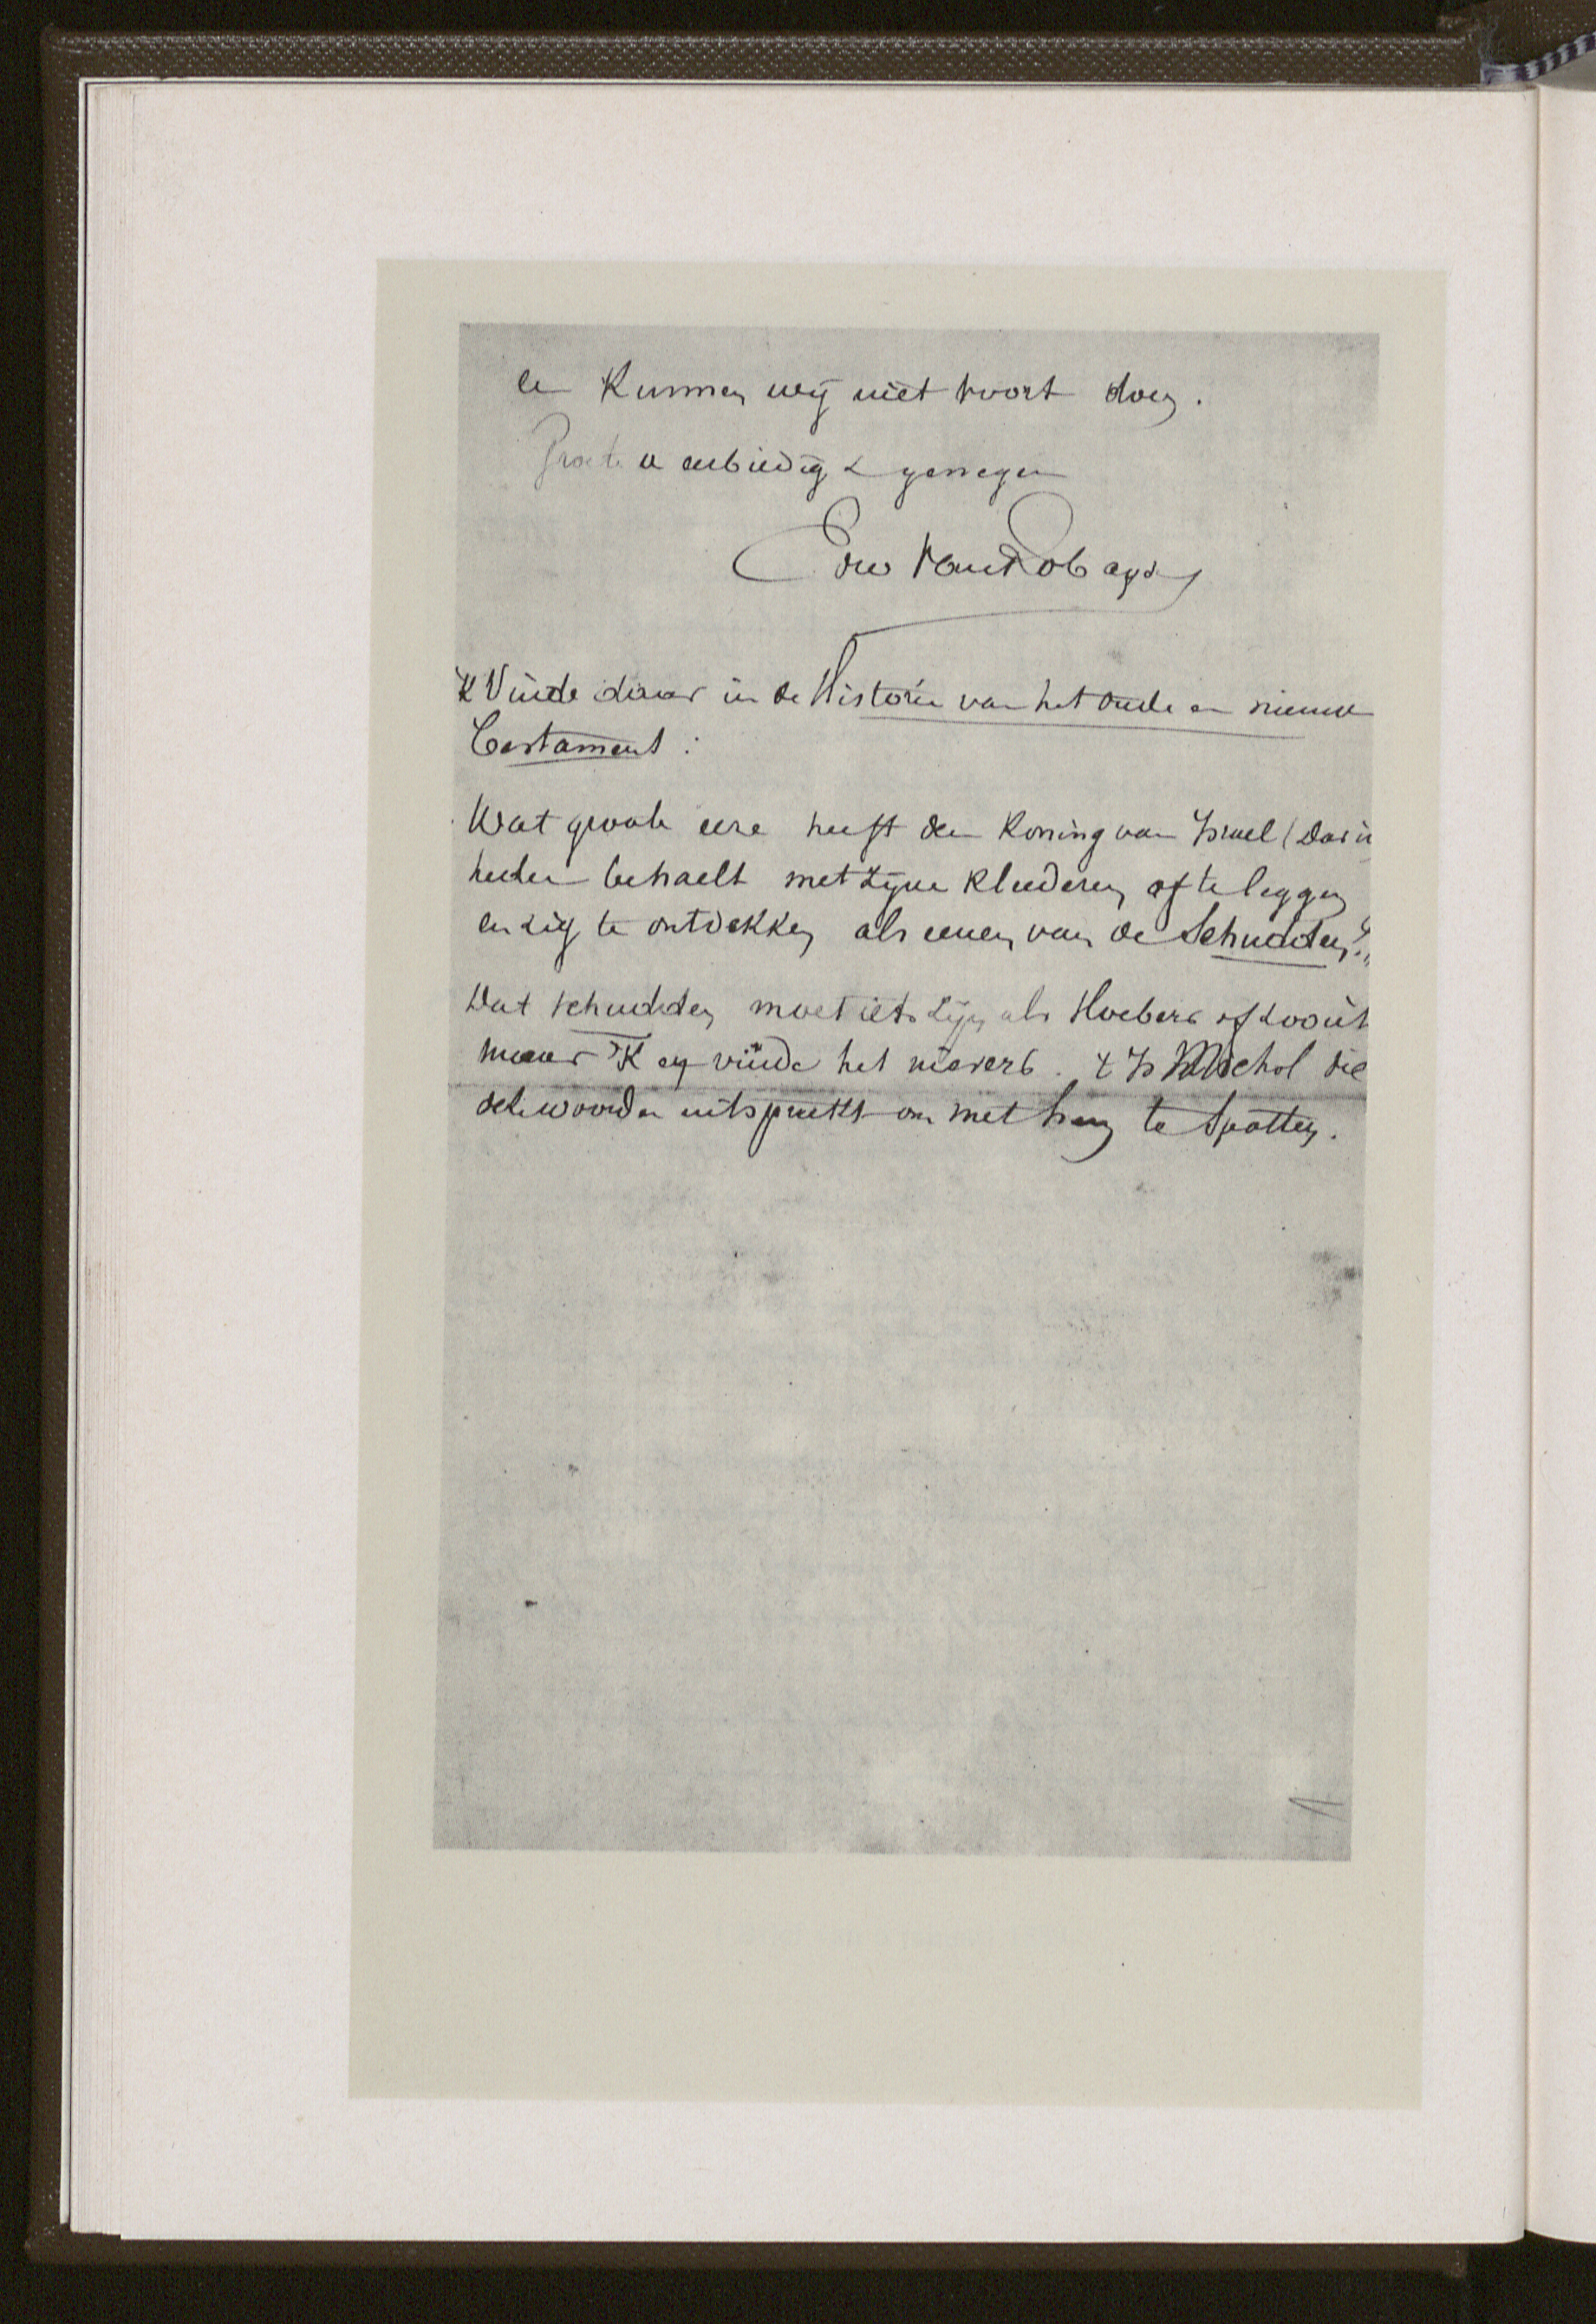 en Kunnen wij niet voort doen.
Groete u eerbiedig & genegen
Edw Van Robays
'K Vinde daar in de Historie van het oude en nieuwe
Testament:
Wat groote eere heeft den Koning van Israel (David
heden behaelt met zyne kleederen af te leggen
en zig te ontdekken als eenen van de Schudden?"
Dat schudden moet iets zijn als Hoebers of zooiets
maar 'K en vinde het nievers. t Is Michol die
de woorden uitspreekt om met hem te spotten.